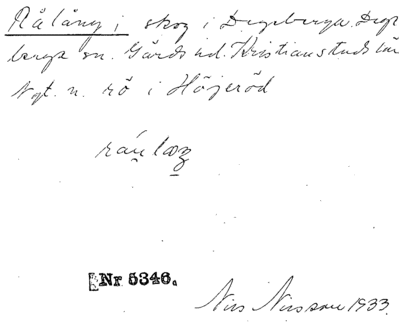 Rålång i skog i Degeberga. Dege
berga sn. Gärds hd. Kristianstads län
Nyt. n. rå i Höjeröd
råulaŋ
Nr 5346.
Nils Nilsson 1933.